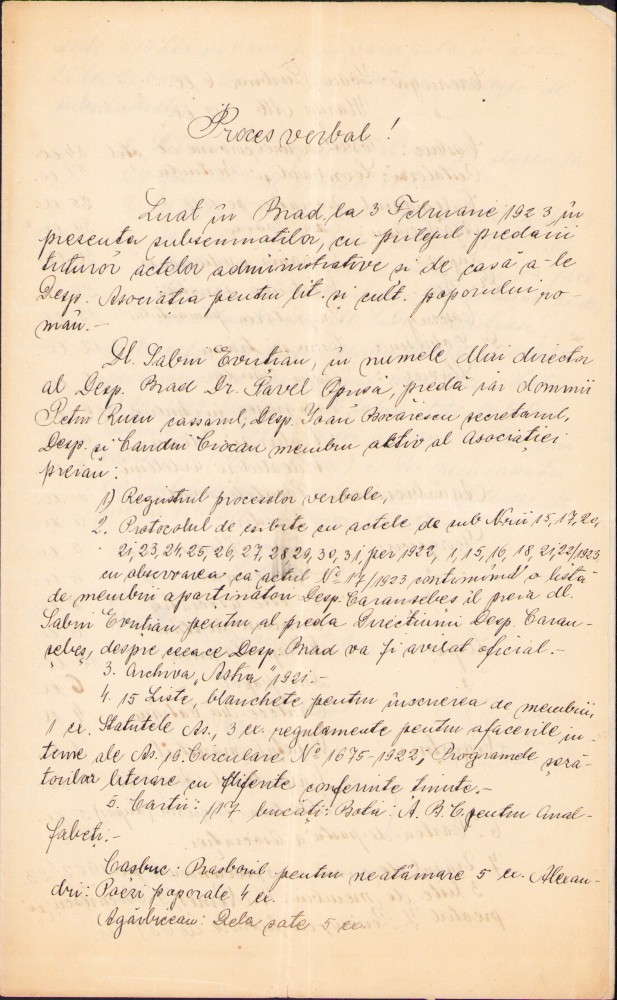 Proces verbal!
Luat în Brad, la 3 Februarie 1923, în
presența subsemnatilor, cu prilejul predării
tuturor actelor administrative si de casă a-le
Desp. Asociatia pentru lit. și cult. poporului ro-
mân.-
Dl. Sabin Evutian, in numele dlui director
al Desp. Brad Dr. Pavel Oprisa, predă iar domnii
Petru Rusu cassarul, Desp. Ioan Bocăiescu secretarul,
Desp. și Candin Ciocan membru activ al Asociației
preiau:
1) Registrul proceselor verbale,
2. Protocolul de esibite cu actele de sub Nrii 15, 17, 20,
21, 23, 24, 25, 26, 27, 28 29, 30, 31, per 1922, 1, 15, 16, 18, 21, 22/1923
cu observarea că actul No 17/1923 continând o listă
de membrii apartinători Desp. Caransebes il preia dl.
Sabin Evutian pentru al preda Direcțiunii Desp. Caran-
șebeș, despre ceeace Desp. Brad va fi avizat oficial.-
3. Archiva "Astra" 1921.-
4. 15 Liste, blanchete pentru înscrierea de membrii,
1 ex. Statutele As., 3 ex. regulamente pentru afacerile in-
terne ale As. 19 Circulare No 1675-1922; Programele șeză-
torilor literare cu diferite conferinte tinute.-
5. Cartii: 117 bucăti: Botiș: A. B. C. pentru Anal-
fabeți.-
Coșbuc: Răsboiul pentru neatâmare 5 ex. Alexan-
dri: Poezi poporale 4 ex.
Agârbiceau: Dela sate 5 ex.